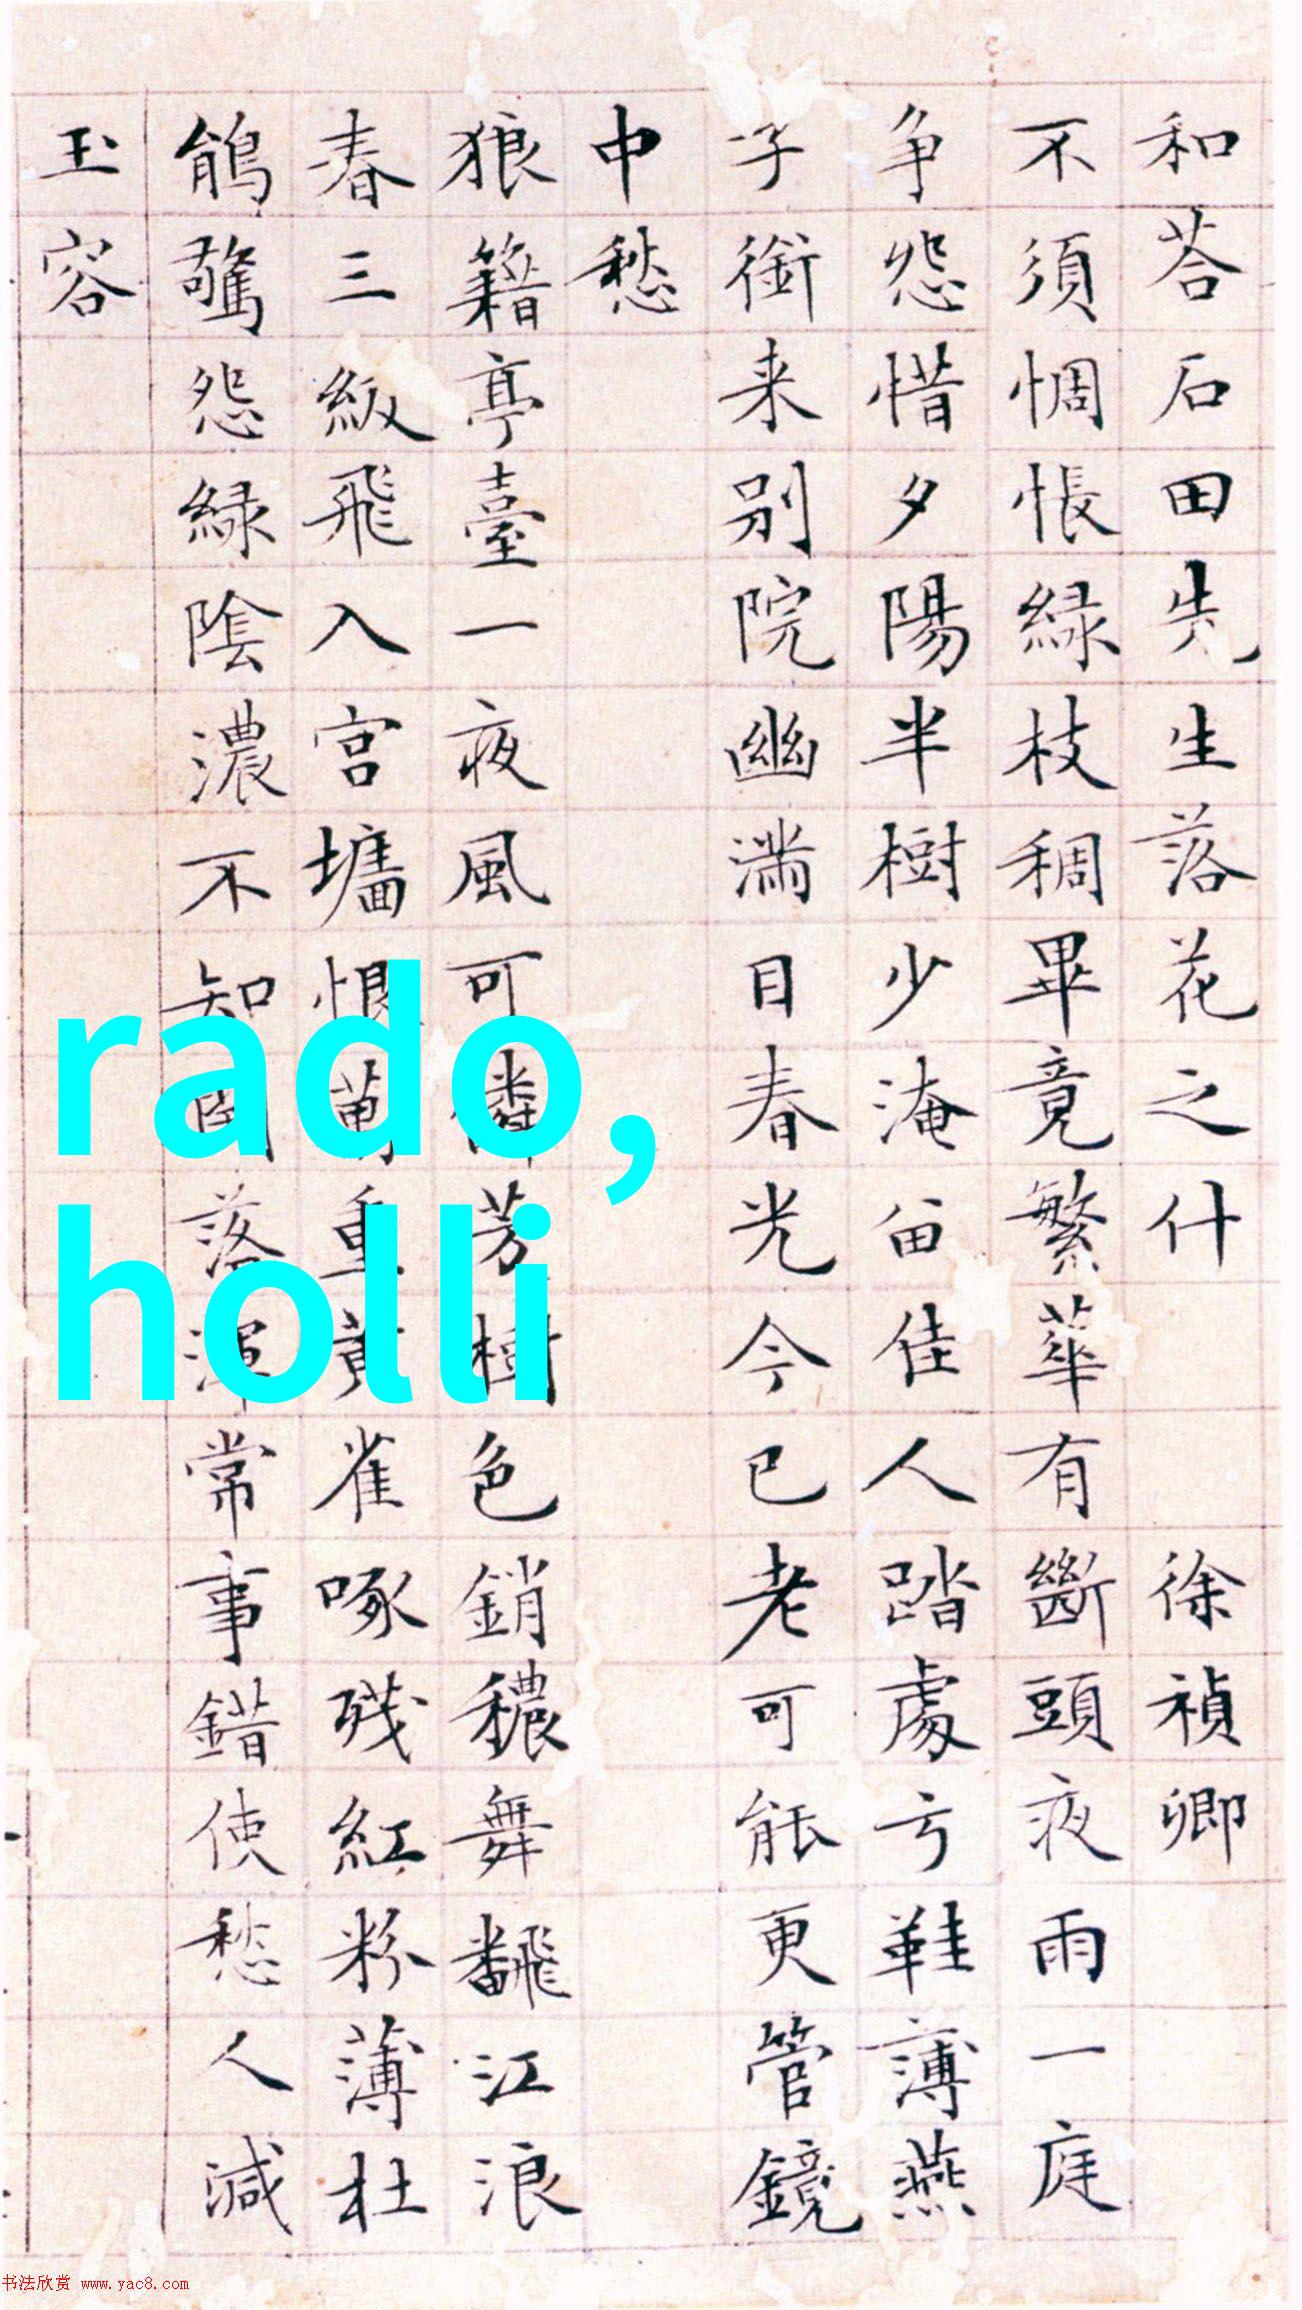 和荅石田先生落花之什 徐禎卿
不須惆悵綠枝稠畢竟繁華有斷頭夜雨一庭
争怨惜夕陽半樹少淹留佳人踏處弓鞋薄燕
子銜来別院幽滿目春光今已老可能更管鏡
中愁
狼籍亭臺一夜風可憐芳樹色銷穠舞飜江浪
春三級飛入宮墻恨萬重黃雀啄殘紅粉薄杜
鵑驚怨綠陰濃不知開落渾常事錯使愁人減
玉容
rado,
holli
书法欣赏 www.yac8.com